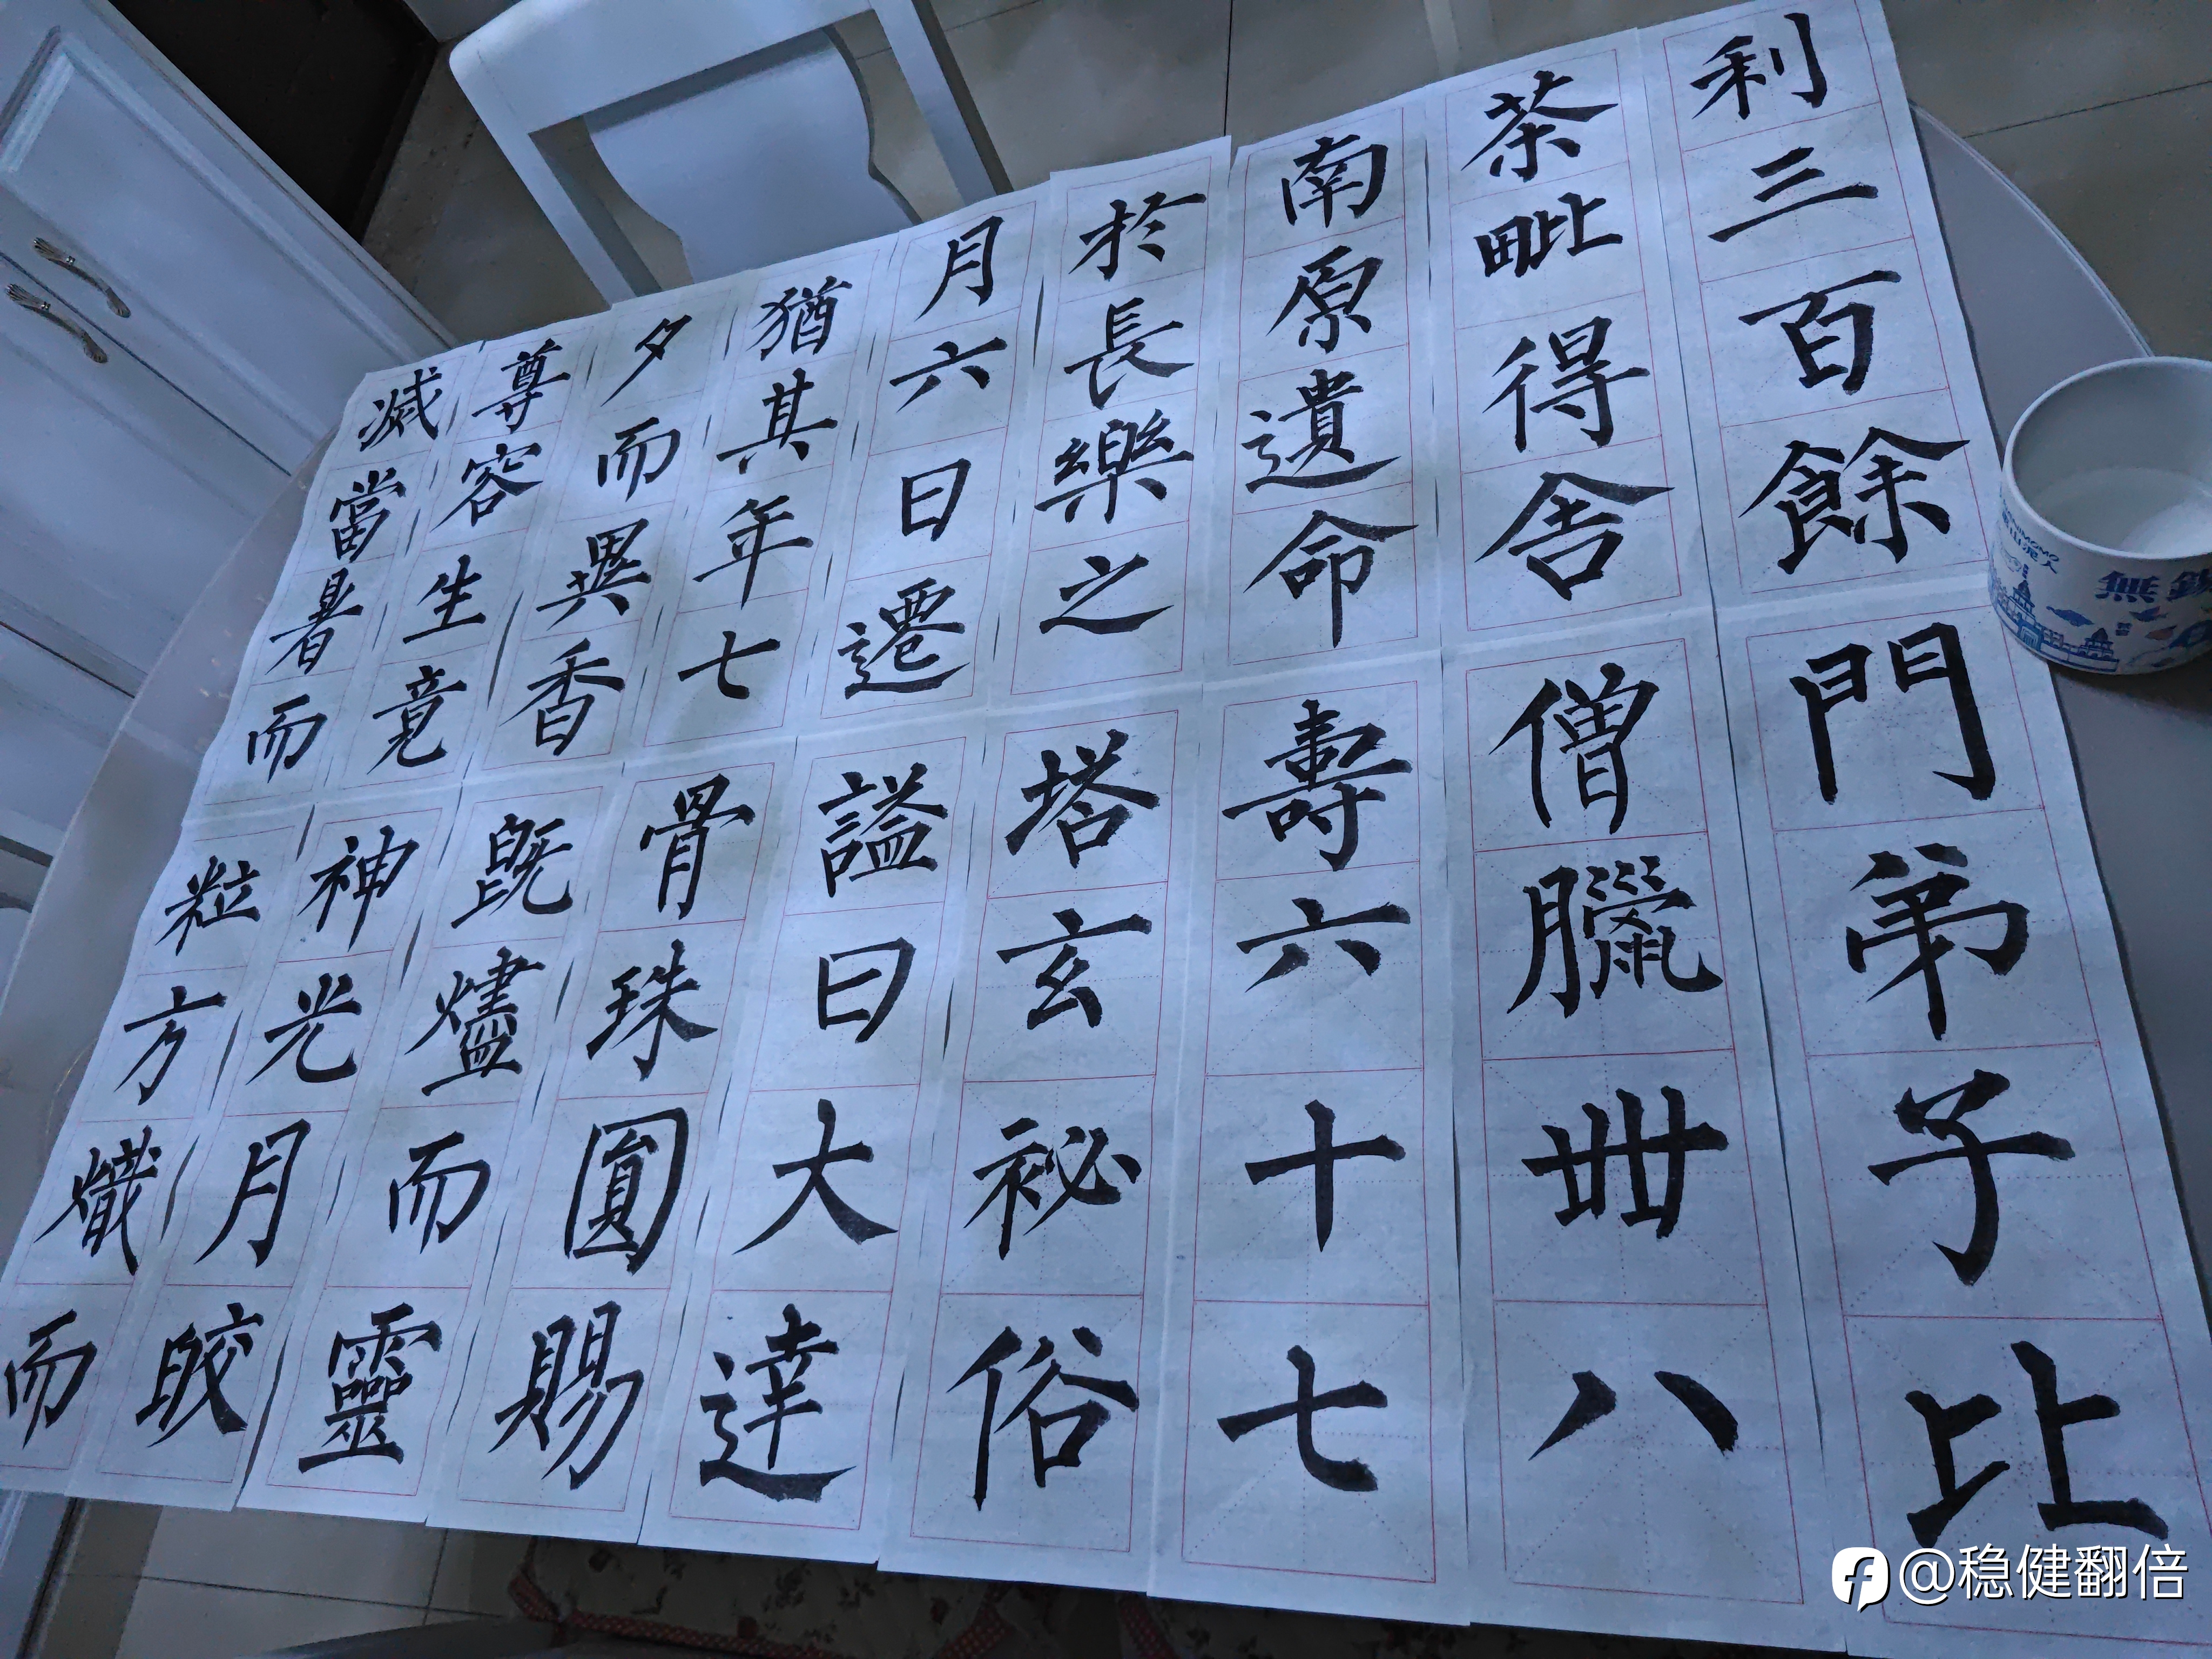 减當暑而
尊容生竟
夕而異香
猶其年七
月六日遷
於長樂之
南原遺命
茶毗得舍
利三百餘
粒方熾而
神光月皎
既燼而靈
骨珠圓賜
謚曰大達
塔玄祕俗
壽六十七
僧臘卌八
門弟子比
無錫
@稳健翻倍